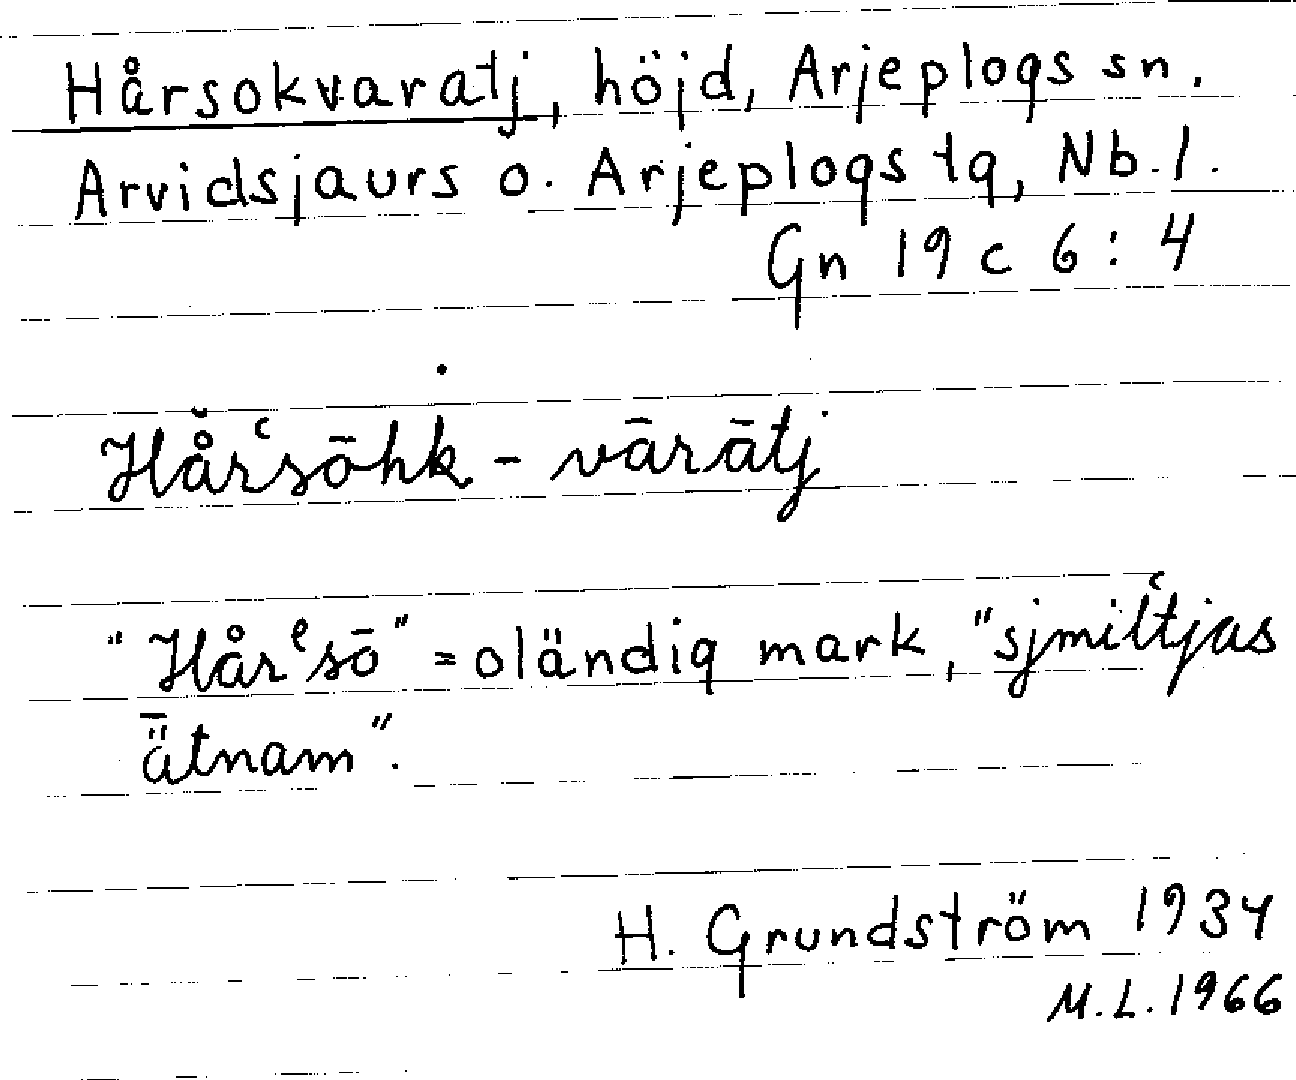 Hårsokvaratj, höjd, Arjeplogs sn,
Arvidsjaurs o. Arjeplogs tg, Nb. l.
Gn 19 c 6 : 4
Hå̆rʿsōhk - vārātj
"Hårᵉsō" = oländig mark, "sjmiltʿjas
ǟtnam".
H. Grundström 1934
M.L. 1966